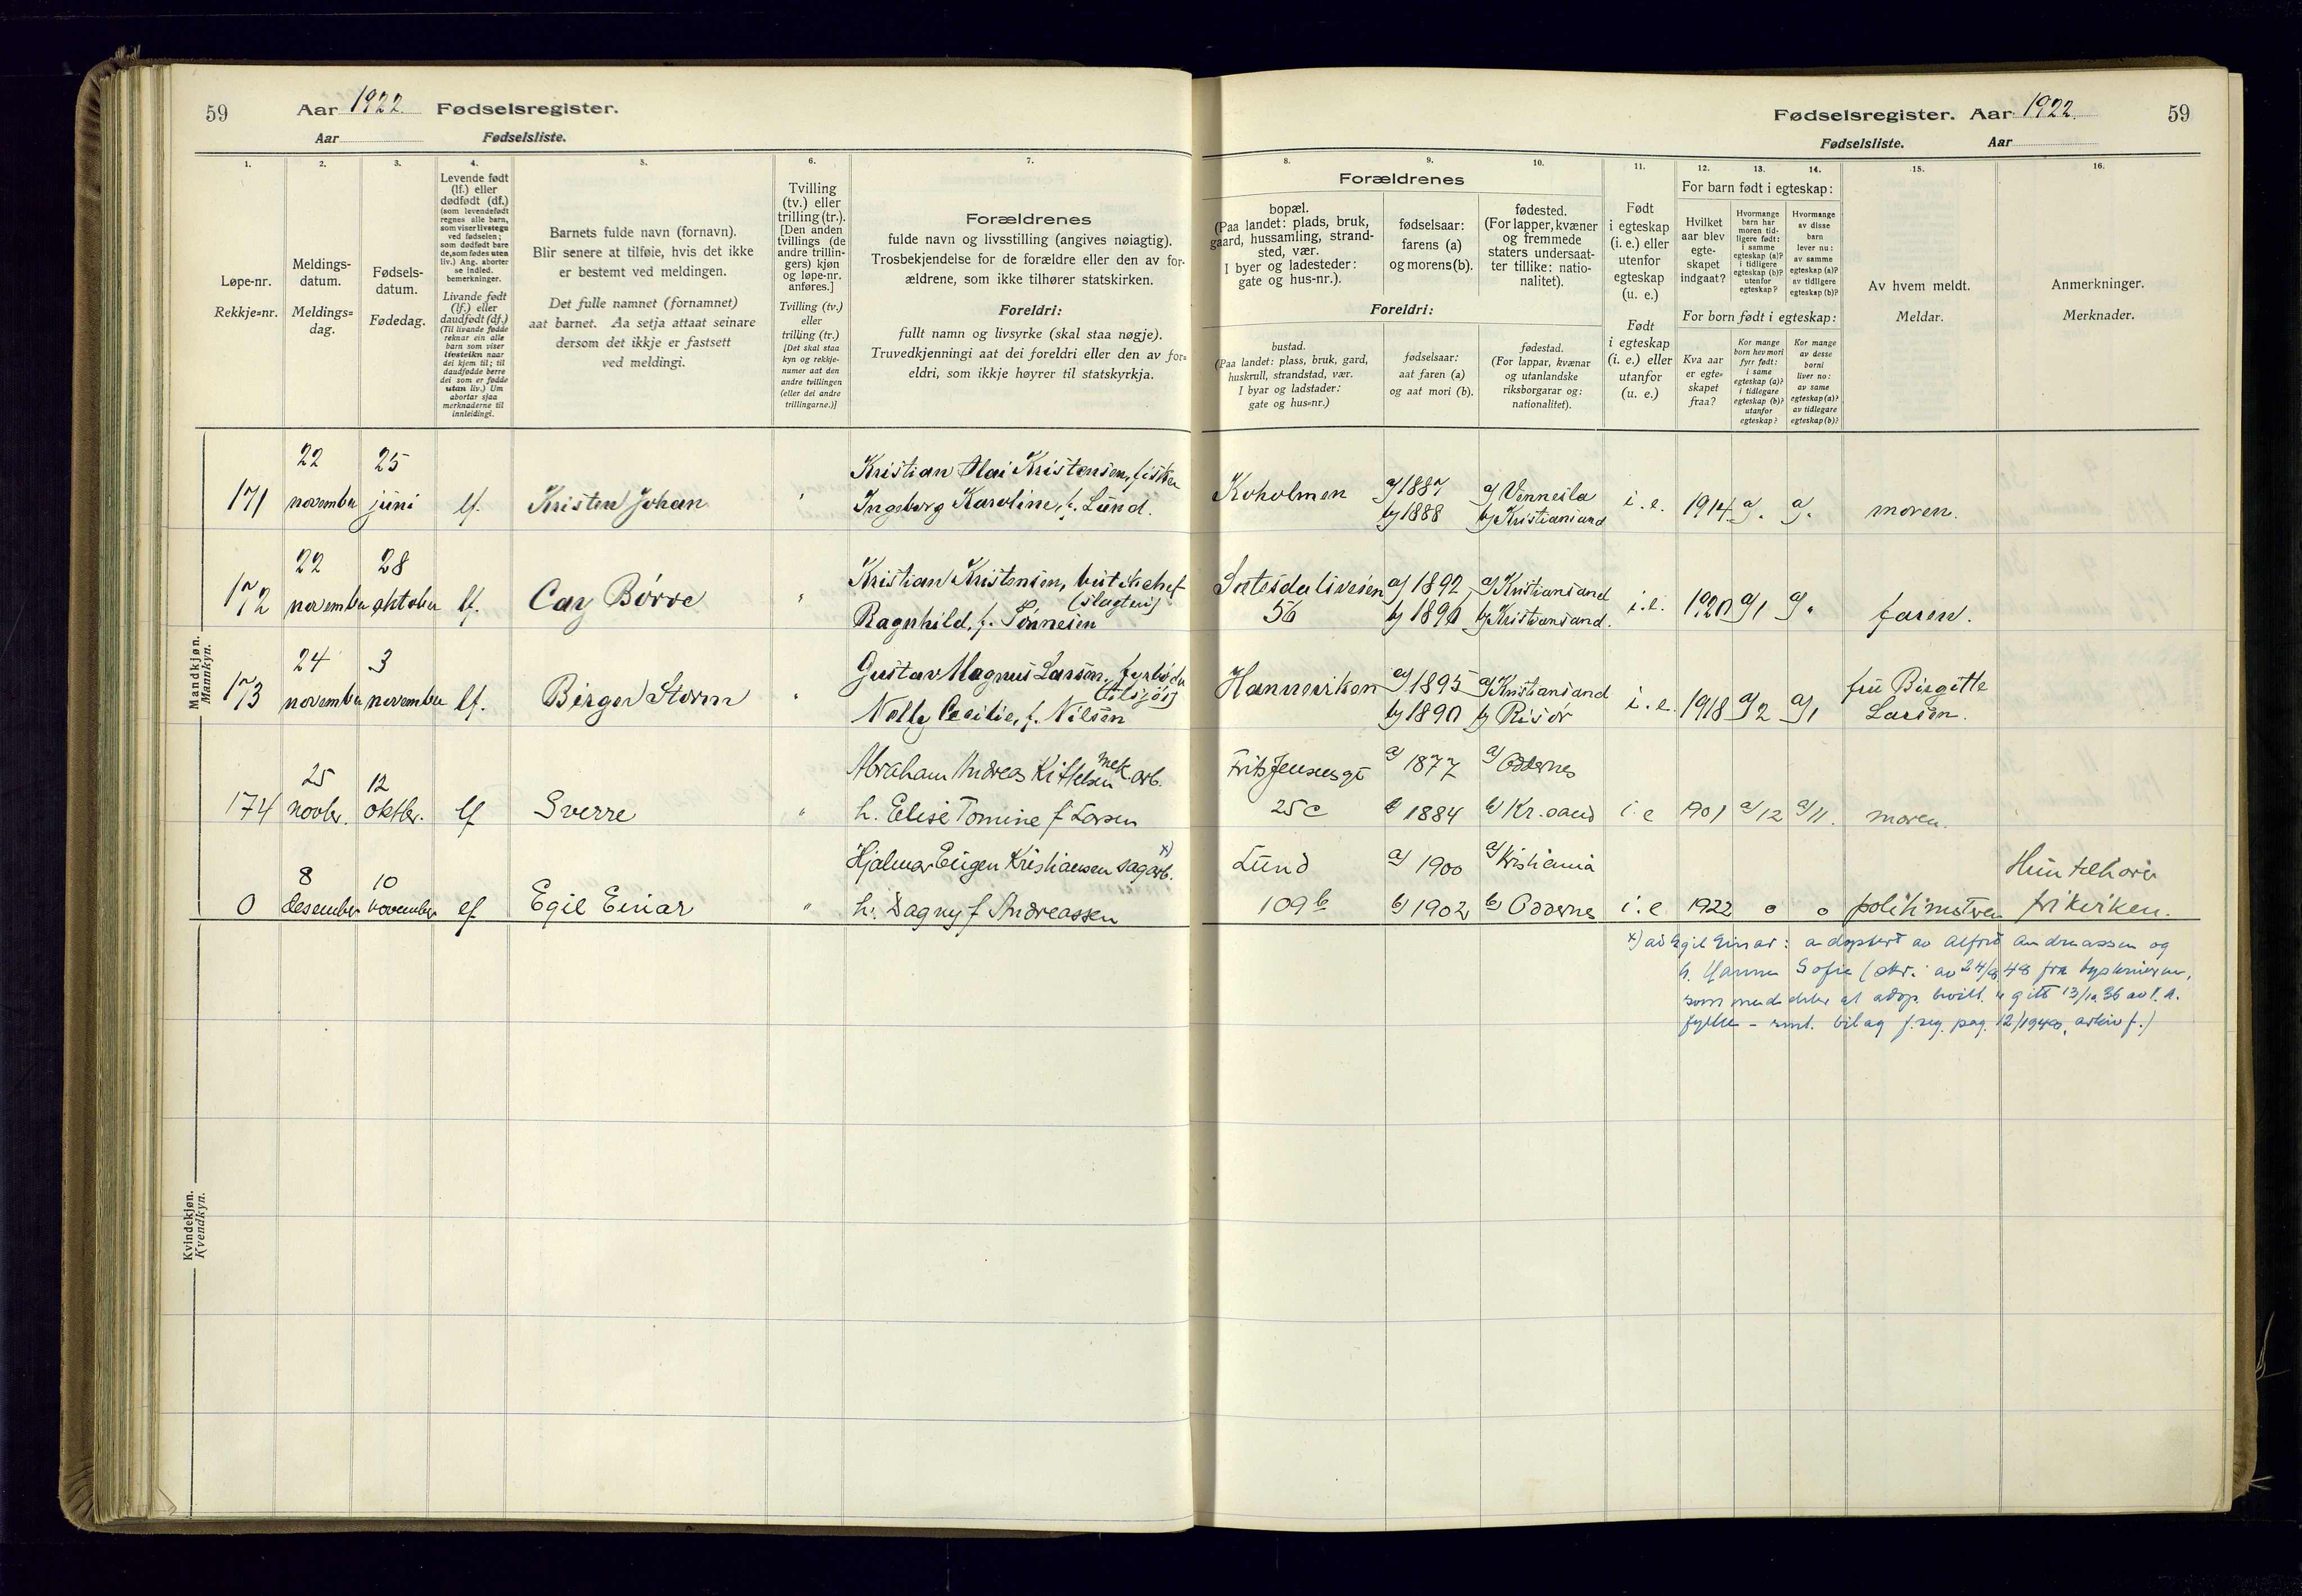 59 Aar 1922. Fødselsregister.
Aar Fødselsliste.
1. 2. 3. 4. 5. 6. 7.
Løpe-nr.
Rekkje=nr.
Meldings-
datum.
Meldings=
dag.
Fødsels-
datum.
Fødedag.
Levende født
(lf.) eller
dødfødt (df.)
(som levendefødt
regnes alle barn,
som viser livstegn
ved fødselen;
som dødfødt bare
de, som fødes uten
liv.) Ang. aborter
se indled.
bemerkninger.
Livande født
(lf.) eller
daudfødt (df.)
(Til livande fødde
reknar ein alle
barn som viser
livsteikn naar
dei kjem til; til
daudfødde berre
dei som er fødde
utan liv.) Um
abortar sjaa
merknaderne til
innleidingi.
Barnets fulde navn (fornavn).
Blir senere at tilføie, hvis det ikke
er bestemt ved meldingen.
Det fulle namnet (fornamnet)
aat barnet. Aa setja attaat seinare
dersom det ikkje er fastsett
ved meldingi.
Tvilling
(tv.) eller
trilling (tr.).
[Den anden
tvillings (de
andre trillin-
gers) kjøn
og løpe-nr.
anføres.]
Tvilling (tv.)
eller
trilling (tr.)
[Det skal staa
kyn og rekkje-
numer aat den
andre tvillingen
(eller dei andre
trillingarne.)]
Forældrenes
fulde navn og livsstilling (angives nøiagtig).
Trosbekjendelse for de forældre eller den av for-
ældrene, som ikke tilhører statskirken.
Foreldri:
fullt namn og livsyrke (skal staa nøgje).
Truvedkjenningi aat dei foreldri eller den av for=
eldri, som ikkje høyrer til statskyrkja.
Mandkjøn.
Mannkyn.
171 22 november 25 juni lf. Kristen Johan " Kristian Olai Kristensen, fisker
Ingeborg Karoline, f. Lund.
172 22 november 28 oktober lf. Cay Börre " Kristian Kristensen, butikchef
(slagteri)
Ragnhild, f. Tönnesen
173 24 november 3 november lf. Birger Storm " Gustav Magnus Larsen, fyrböder
(tilsjös)
Nelly Cecilie, f. Nilsen
174 25 novbr. 12 oktbr. lf Sverre " Abraham Andreas Kittelsen mek arb.
h. Elise Tomine f Larsen
0 8 desember 10 november lf Egil Einar " Hjalmar Eugen Kristiansen sagarb. x)
h. Dagny f Andreassen
Kvindekjøn.
Kvendkyn.
Fødselsregister. Aar 1922. 59
Fødselsliste. Aar
8. 9. 10. 11. 12. 13. 14. 15. 16.
Forældrenes
bopæl.
(Paa landet: plads, bruk,
gaard, hussamling, strand-
sted, vær.
I byer og ladesteder:
gate og hus-nr.).
fødselsaar:
farens (a)
og morens (b).
fødested.
(For lapper, kvæner
og fremmede
staters undersaat-
ter tillike: natio-
nalitet).
Foreldri:
bustad.
(Paa landet: plass, bruk, gard,
huskrull, strandstad, vær.
I byar og ladstader:
gate og hus=nr.)
fødselsaar:
aat faren (a)
og aat mori (b).
fødestad.
(For lappar, kvænar
og utanlandske
riksborgarar og:
nationalitet).
Født
i egteskap
(i. e.) eller
utenfor
egteskap
(u. e.)
Født
i egteskap
(i. e.) eller
utanfor
(u. e.)
For barn født i egteskap:
Hvilket
aar blev
egte-
skapet
indgaat?
Hvormange
barn har
moren tid-
ligere født:
i samme
egteskap (a)?
i tidligere
egteskap (b)?
utenfor
egteskap?
Hvormange
av disse
barn
lever nu:
av samme
egteskap (a)?
av tidligere
egteskap (b)?
For born født i egteskap:
Kva aar
er egte=
skapet
fraa?
Kor mange
born hev mori
fyr født:
i same
egteskap (a)?
i tidlegare
egteskap (b)?
utanfor
egteskap?
Kor mange
av desse
borni
liver no:
av same
egteskap (a)?
av tidlegare
egteskap (b)?
Av hvem meldt.
Meldar.
Anmerkninger.
Merknader.
Koholmen a) 1887 a) Vennesla i. e. 1914 a). a). moren.
b) 1888 b) Kristiansand
Setesdalsveien a) 1892 a) Kristiansand i. e. 1920 a) 1 a) " faren.
56 b) 1896 b) Kristiansand.
Hanneviken a) 1895 a) Kristiansand i. e. 1918 a) 2 a) 1 fru Birgitte
b) 1890 b) Risör Larsen.
Fritz Jensensgt a) 1877 a) Oddernes
25c b) 1884 b) Kr. sand i. e 1901 a/12 a/11. moren.
Lund a) 1900 a) Kristiania Hun tilhører
109b b) 1902 b) Oddernes i. e 1922 o o politimesteren frikirken.
x) ad Egil Einar: adoptert av Alfred Andreassen og
h. Hanna Sofie (skr. av 24/8 48 fra byskriveren,
som meddeler at adop. bevill. er gitt 13/10 36 av V. A.
fylke - sml. bilag f. reg. pag. 12/1948, arkiv f.)